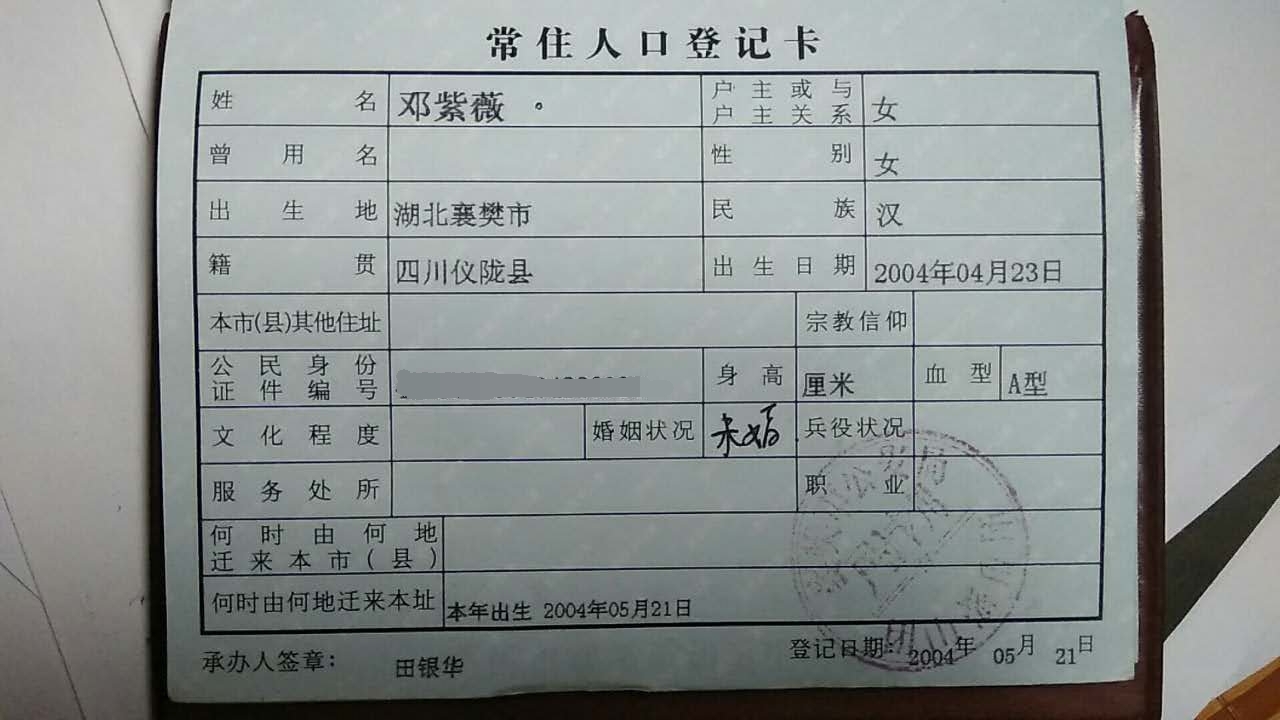 常住人口登记卡
姓名 邓紫薇 。 户主或与户主关系 女
曾用名 性别 女
出生地 湖北襄樊市 民族 汉
籍贯 四川仪陇县 出生日期 2004年04月23日
本市(县)其他住址 宗教信仰
公民身份证件编号 身高 厘米 血型 A型
文化程度 婚姻状况 未婚 兵役状况
服务处所 职业
何时由何地迁来本市(县)
何时由何地迁来本址 本年出生 2004年05月21日
承办人签章: 田银华 登记日期: 2004年 05月 21日